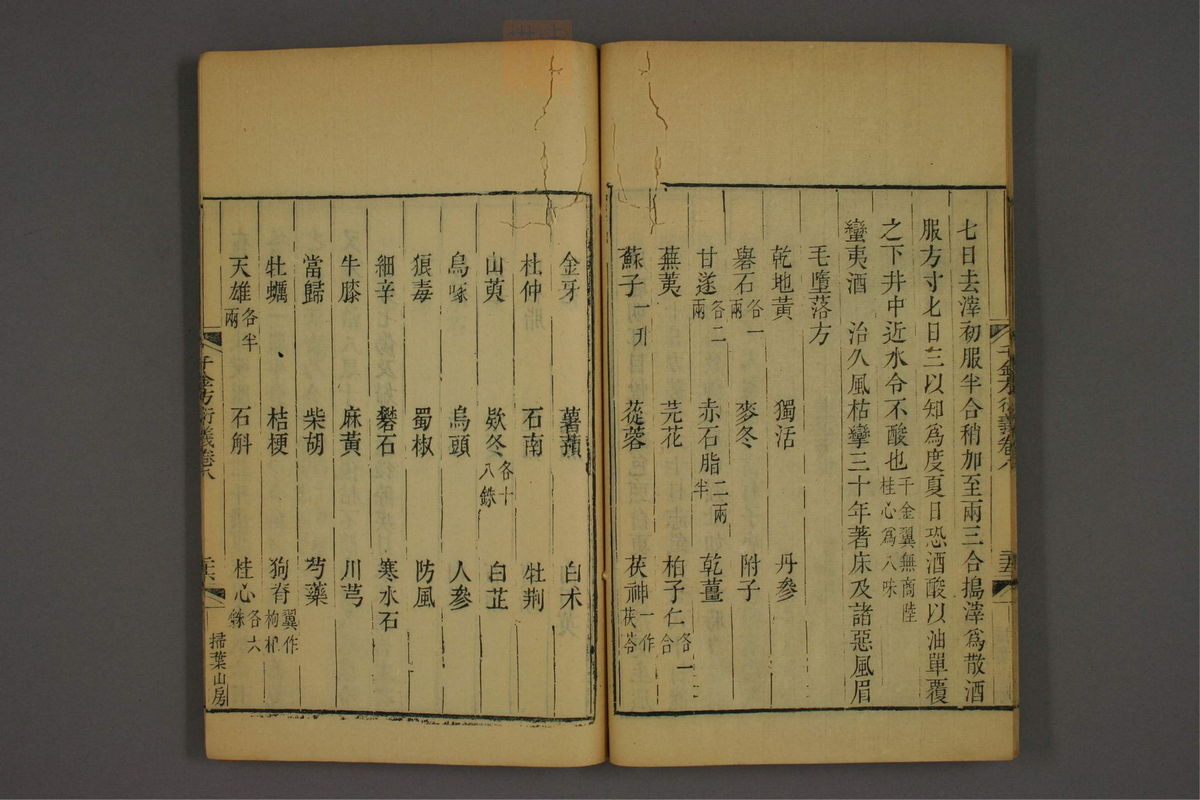 七日去滓初服半合稍加至兩三合搗滓爲散酒
服方寸匕日三以知爲度夏日恐酒酸以油單覆
之下井中近水令不酸也千金翼無商陸桂心爲八味
蠻夷酒　治久風枯攣三十年著床及諸惡風眉
毛墮落方
乾地黃　獨活　丹參
礜石各一兩　麥冬　附子
甘遂各二兩　赤石脂二兩半　乾薑
蕪荑　芫花　柏子仁各一合
蘇子一升　蓯蓉　茯神一作茯苓
千金方衍義卷八
金牙　薯蕷　白朮
杜仲　石南　牡荆
山萸　欵冬各十八銖　白芷
烏喙　烏頭　人參
狼毒　蜀椒　防風
細辛　礬石　寒水石
牛膝　麻黃　川芎
當歸　柴胡　芍藥
牡蠣　桔梗　狗脊翼作枸杞
天雄各半兩　石斛　桂心各六銖
千金方衍義卷八　掃葉山房